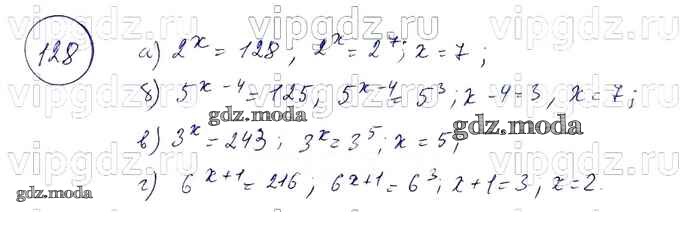 vipgdz.ru vipgdz.ru vipgdz.ru
128 а) 2^x = 128, 2^x = 2^7; x = 7;
б) 5^{x-4} = 125, 5^{x-4} = 5^3; x-4=3, x=7;
gdz.moda
vipgdz.ru vipgdz.ru vipgdz.ru
в) 3^x = 243; 3^x = 3^5; x = 5;
gdz.moda
vipgdz.ru vipgdz.ru vipgdz.ru
г) 6^{x+1} = 216; 6^{x+1} = 6^3; x+1=3, x=2.
gdz.moda